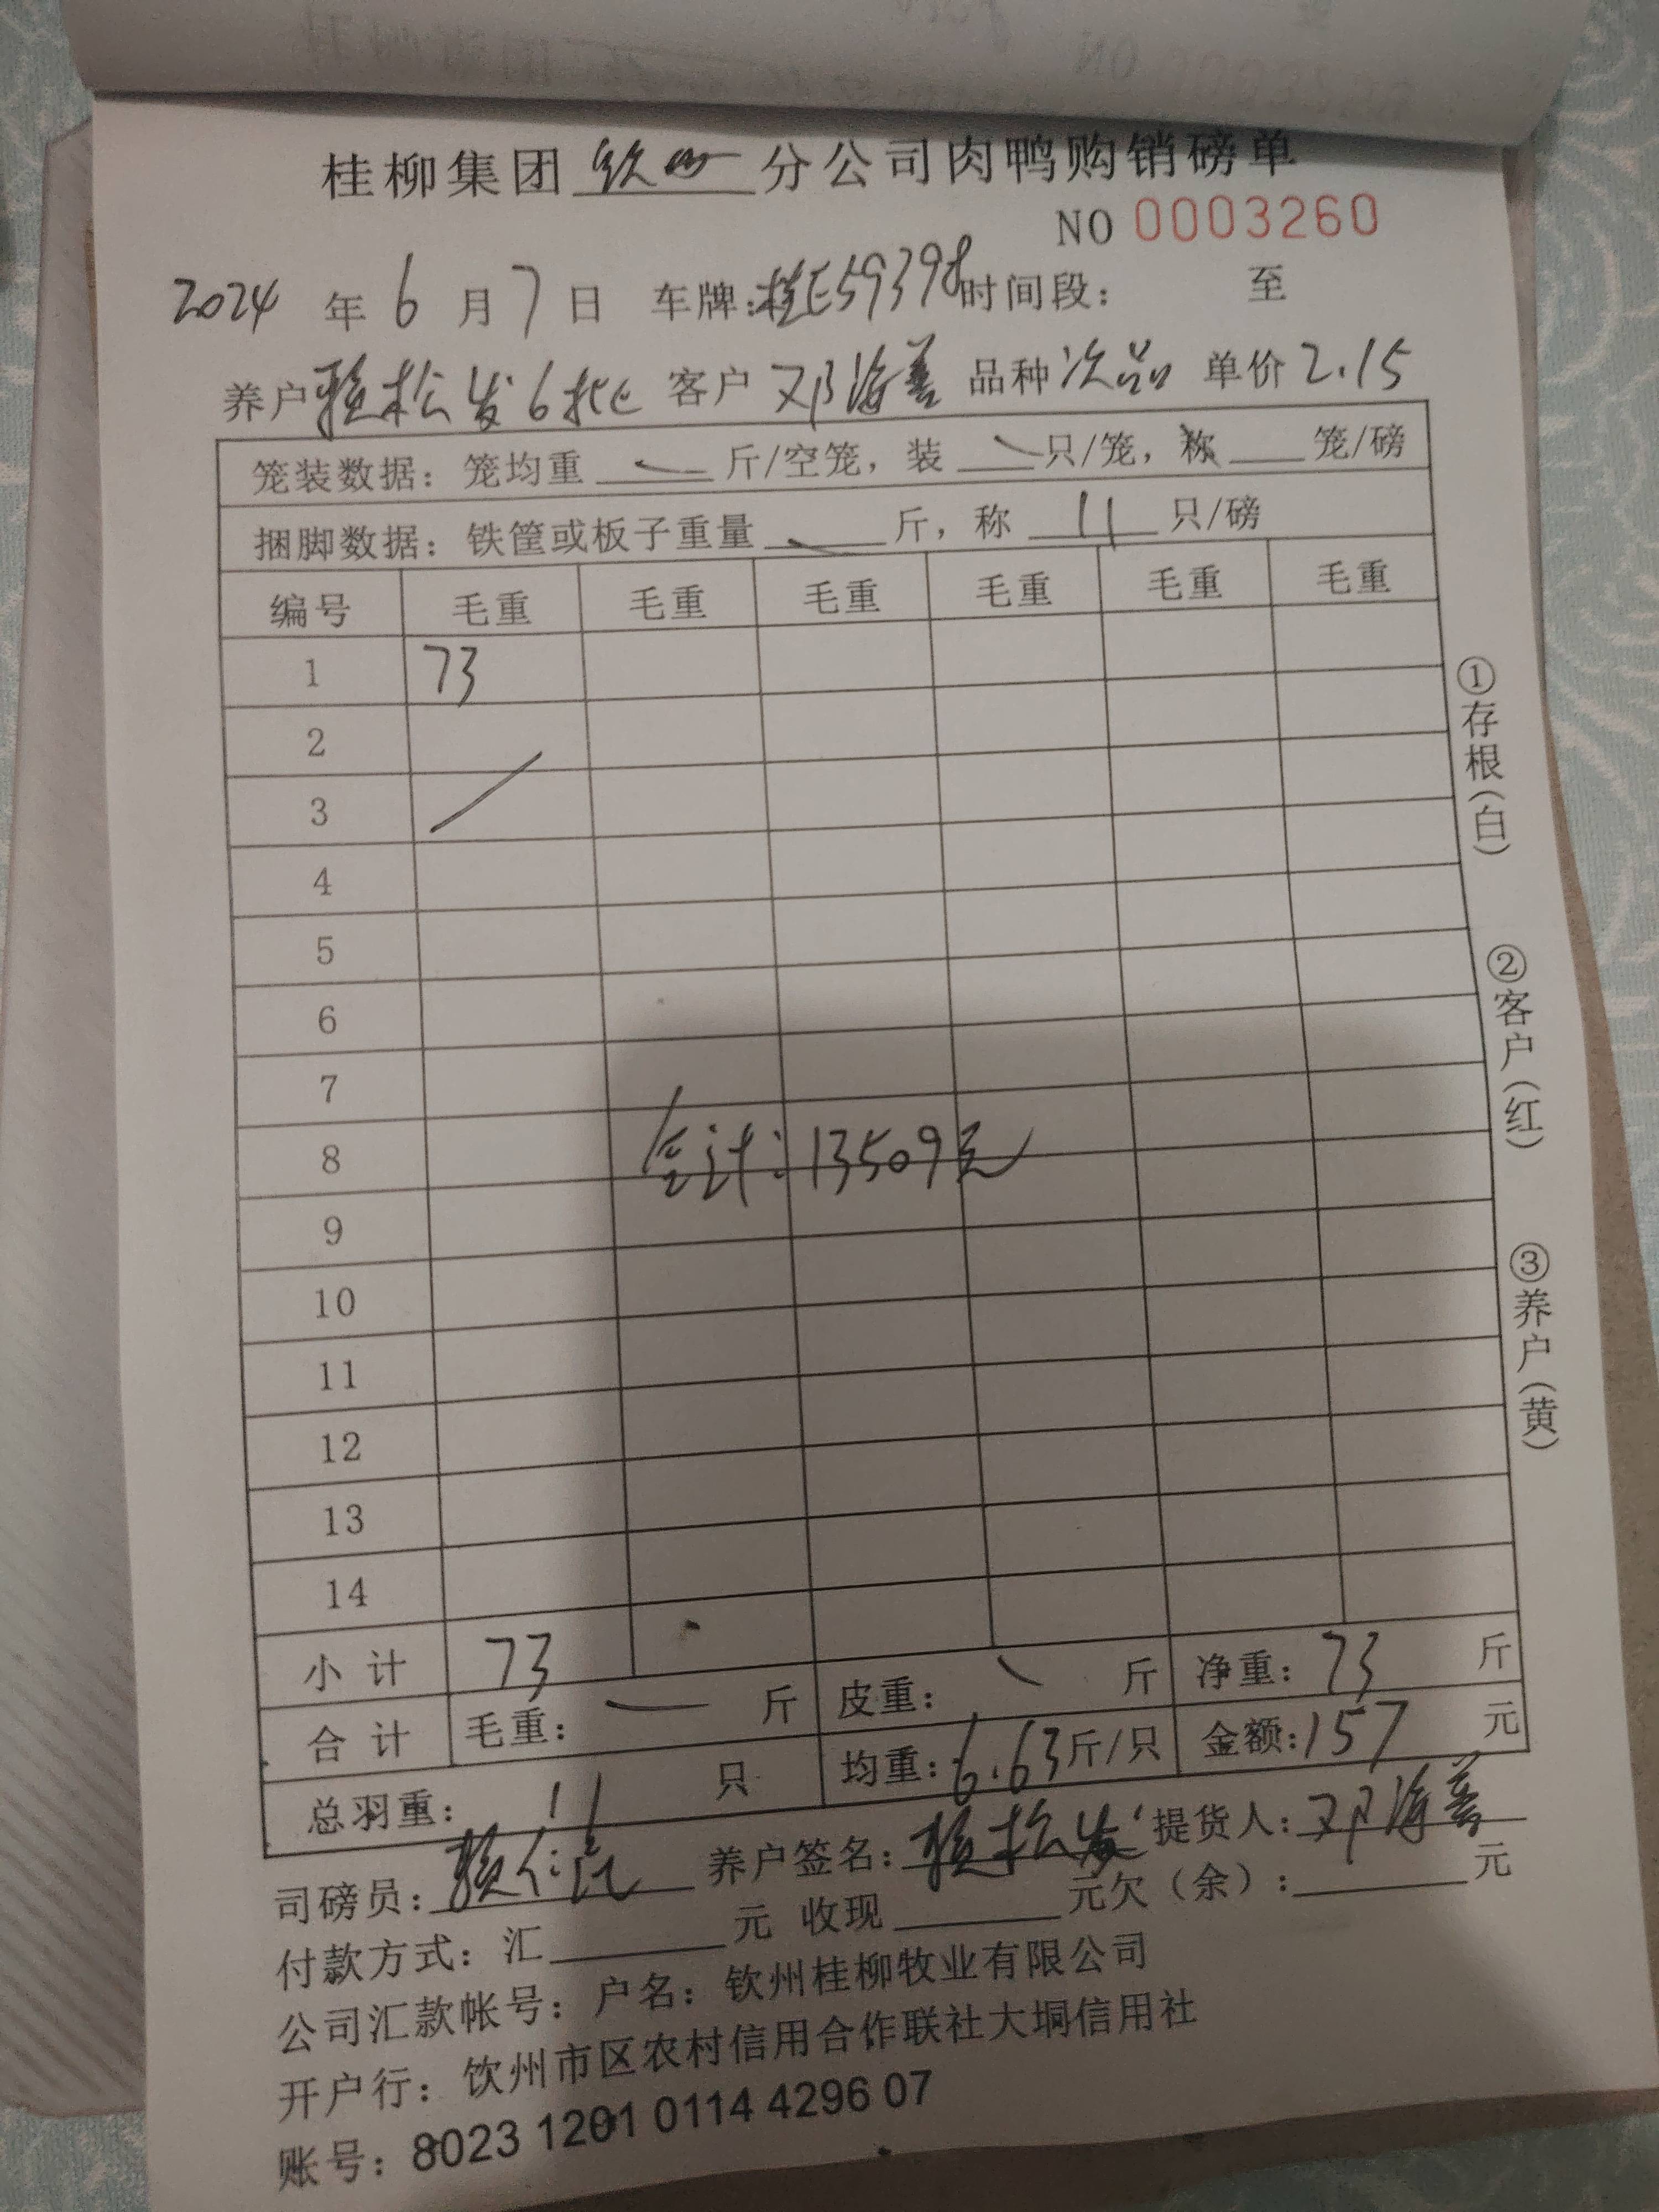 桂柳集团 钦州 分公司肉鸭购销磅单
NO 0003260
2024 年 6 月 7 日 车牌:桂E59398 时间段: 至
养户 赖松发6批 客户 邓海善 品种 次品 单价 2.15
笼装数据: 笼均重 斤/空笼, 装 只/笼, 称 笼/磅
捆脚数据: 铁筐或板子重量 斤, 称 11 只/磅
编号 毛重 毛重 毛重 毛重 毛重 毛重
1 73
2
3
4
5
6
7
8 合计:13509元
9
10
11
12
13
14
小计 73
合计 毛重: 斤 皮重: 斤 净重: 73 斤
总羽重: 11 只 均重: 6.63 斤/只 金额: 157 元
司磅员: 赖 养户签名: 赖松发 提货人: 邓海善
付款方式: 汇 元 收现 元欠(余): 元
公司汇款帐号: 户名: 钦州桂柳牧业有限公司
开户行: 钦州市区农村信用合作联社大垌信用社
账号: 8023 1201 0114 4296 07
①存根(白)
②客户(红)
③养户(黄)